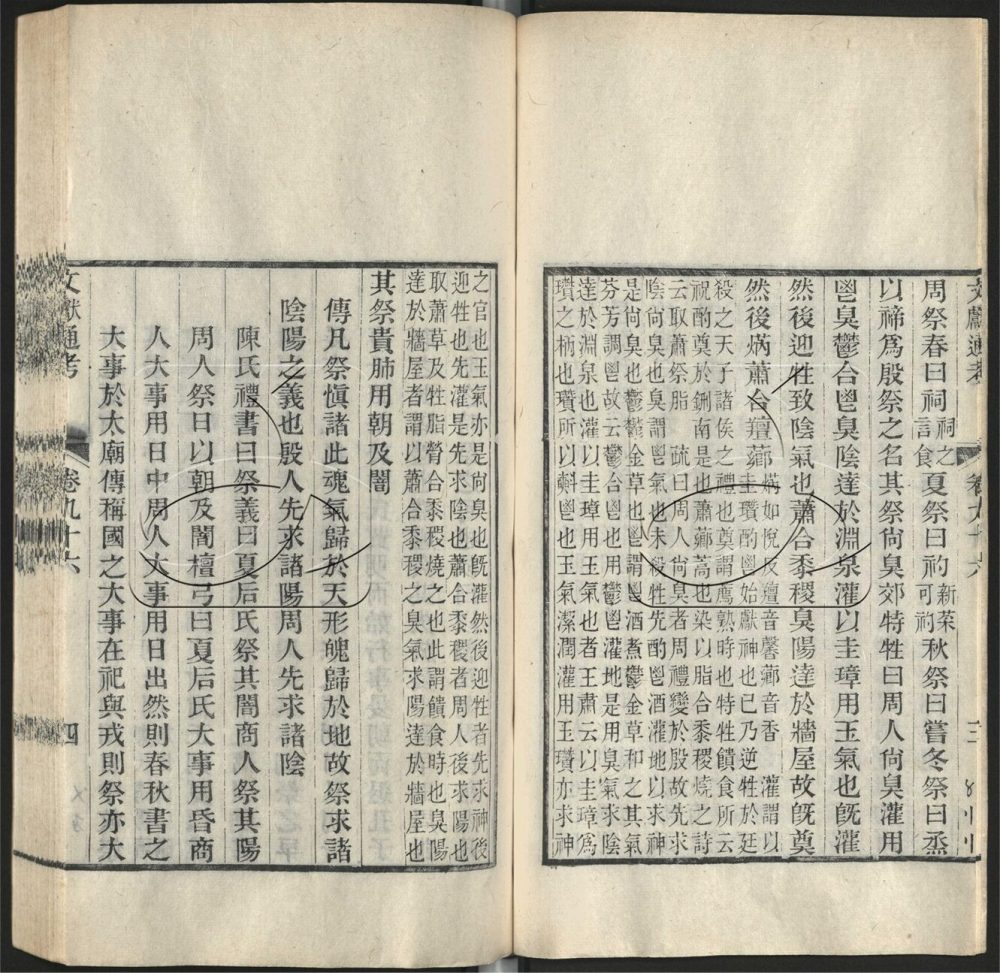 文獻通考
卷九十六
三
周祭春曰祠祠之言食夏祭曰礿新菜可礿秋祭曰嘗冬祭曰烝
以禘爲殷祭之名其祭尙臭郊特牲曰周人尙臭灌用
鬯臭鬱合鬯臭陰達於淵泉灌以圭璋用玉氣也旣灌
然後迎牲致陰氣也蕭合黍稷臭陽達於牆屋故旣奠
然後焫蕭合羶薌焫如悅反羶音馨薌音香 灌謂以
圭瓚酌鬯始獻神也已乃逆牲於廷
殺之天子諸侯之禮也奠謂薦熟時也特牲饋食所云
祝酌奠於鉶南是也蕭薌蒿也染以脂合黍稷燒之詩
云取蕭祭脂 疏曰周人尙臭者周禮變於殷故先求
陰尙臭也臭謂鬯氣也未殺牲先酌鬯酒灌地以求神
是尙臭也鬱鬱金草也鬯謂鬯酒煮鬱金草和之其氣
芬芳調鬯故云鬱合鬯也用鬯灌地是用臭氣求陰
達於淵泉也灌以圭璋用玉氣也者王肅云以圭璋爲
瓚之柄也瓚所以㪺鬯也玉氣潔潤灌用玉瓚亦求神
之官也玉氣亦是尙臭也旣灌然後迎牲者先求神後
迎牲也先灌是先求陰也蕭合黍稷者周人後求陽也
取蕭草及牲脂膋合黍稷燒之也此謂饋食時也臭陽
達於牆屋者謂以蕭合黍稷之臭氣求陽達於牆屋也
其祭貴肺用朝及闇
傳凡祭愼諸此魂氣歸於天形魄歸於地故祭求諸
陰陽之義也殷人先求諸陽周人先求諸陰
陳氏禮書曰祭義曰夏后氏祭其闇商人祭其陽
周人祭日以朝及闇檀弓曰夏后氏大事用昏商
人大事用日中周人大事用日出然則春秋書之
大事於太廟傳稱國之大事在祀與戎則祭亦大
文獻通考
卷九十六
四